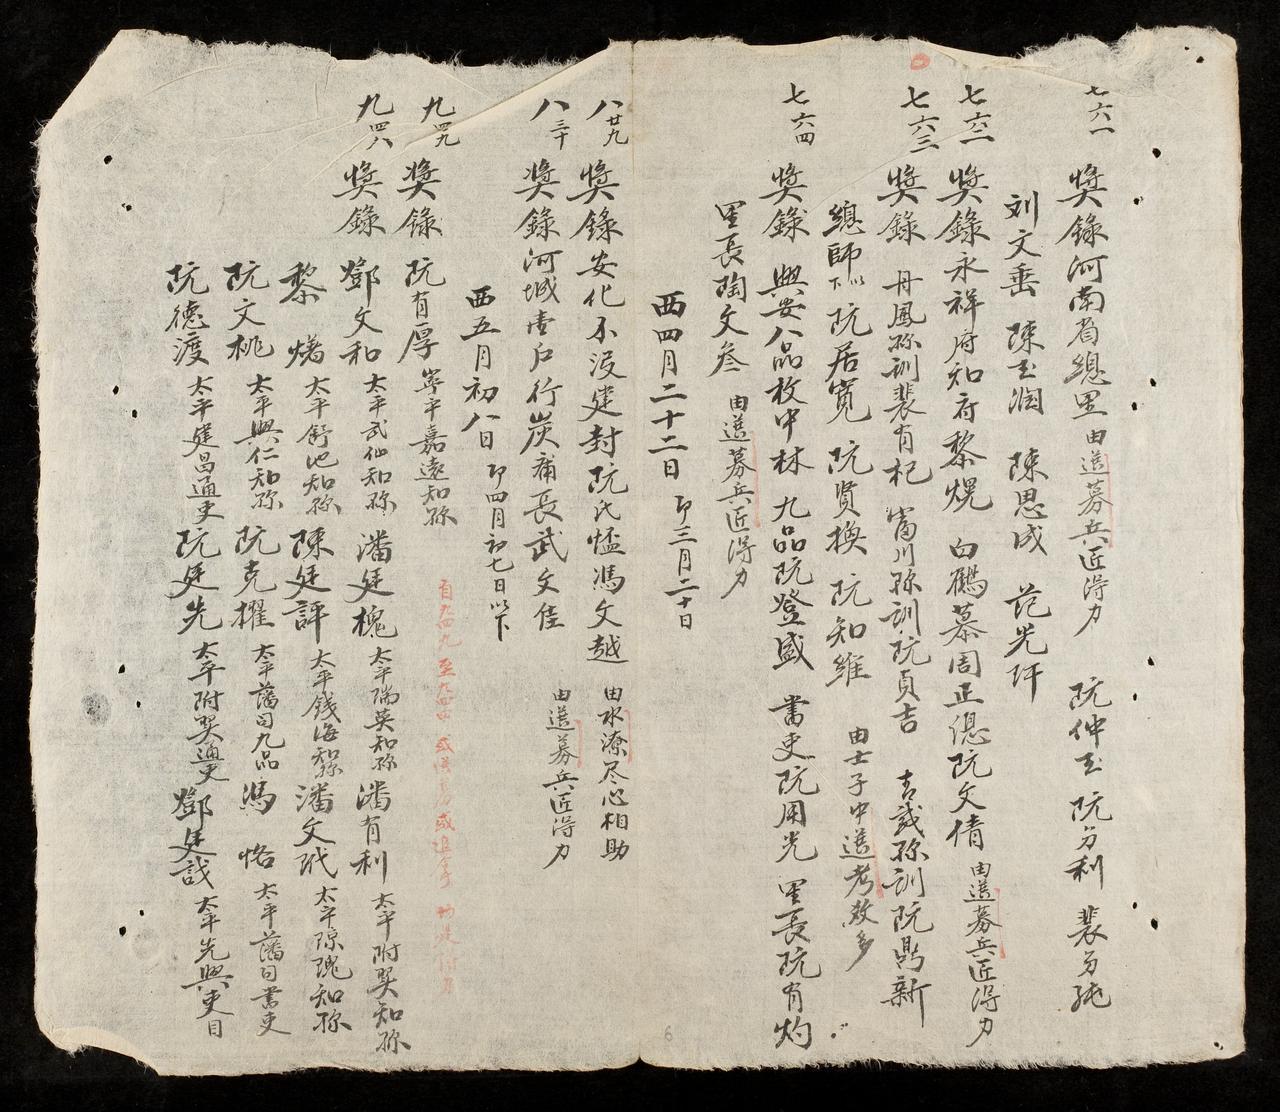 七六一 獎錄河南省總里由送募兵匠得力 阮仲玉 阮勻利 裴勻純
刘文垂 陳玉潤 陳思成 范光玕
七六二 獎錄永祥府知府黎熀 白鶴慕周正偬阮文倩 由送募兵匠得力
七六三 獎錄 丹鳳縣訓裴有杞 富川縣訓阮貞吉 青威縣訓阮鼎新
總師以下 阮居寬 阮賢換 阮知維 由士子中送考效多
七六四 獎錄 興安八品枚中林 九品阮登盛 書吏阮用光 里長阮有灼
里長陶文叁 由送募兵匠得力
西四月二十二日 卽三月二十日
八廿九 獎錄安化不没建封阮氏𢙇馮文越 由水潦尽心相助
八三十 獎錄河城壹戶行炭甫長武文佳 由送募兵匠得力
西五月初八日 卽四月初七日以下
九四九 獎錄 阮有厚 寧平嘉遠知縣
九四八 獎錄 鄧文和 太平武仙知縣 潘廷槐 太平瑞英知縣 潘有利 太平附翼知縣
黎 㷮 太平舒池知縣 陳廷評 太平錢海知縣 潘文玳 太平瓊瑰知縣
阮文桃 太平興仁知縣 阮克擢 太平藩司九品 馮 恪 太平藩司書吏
阮德渡 太平建昌通吏 阮廷先 太平附翼通吏 鄧廷戩 太平先興吏目
6